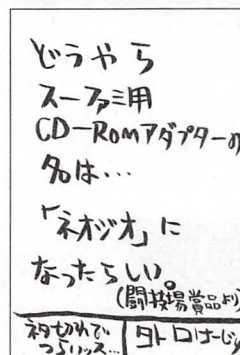 どうやら
スーファミ用
CD-ROMアダプターの
名は…
「ネオジオ」に
なったらしい。
(闘技場賞品より)
ネタ切れで
つらいッス…